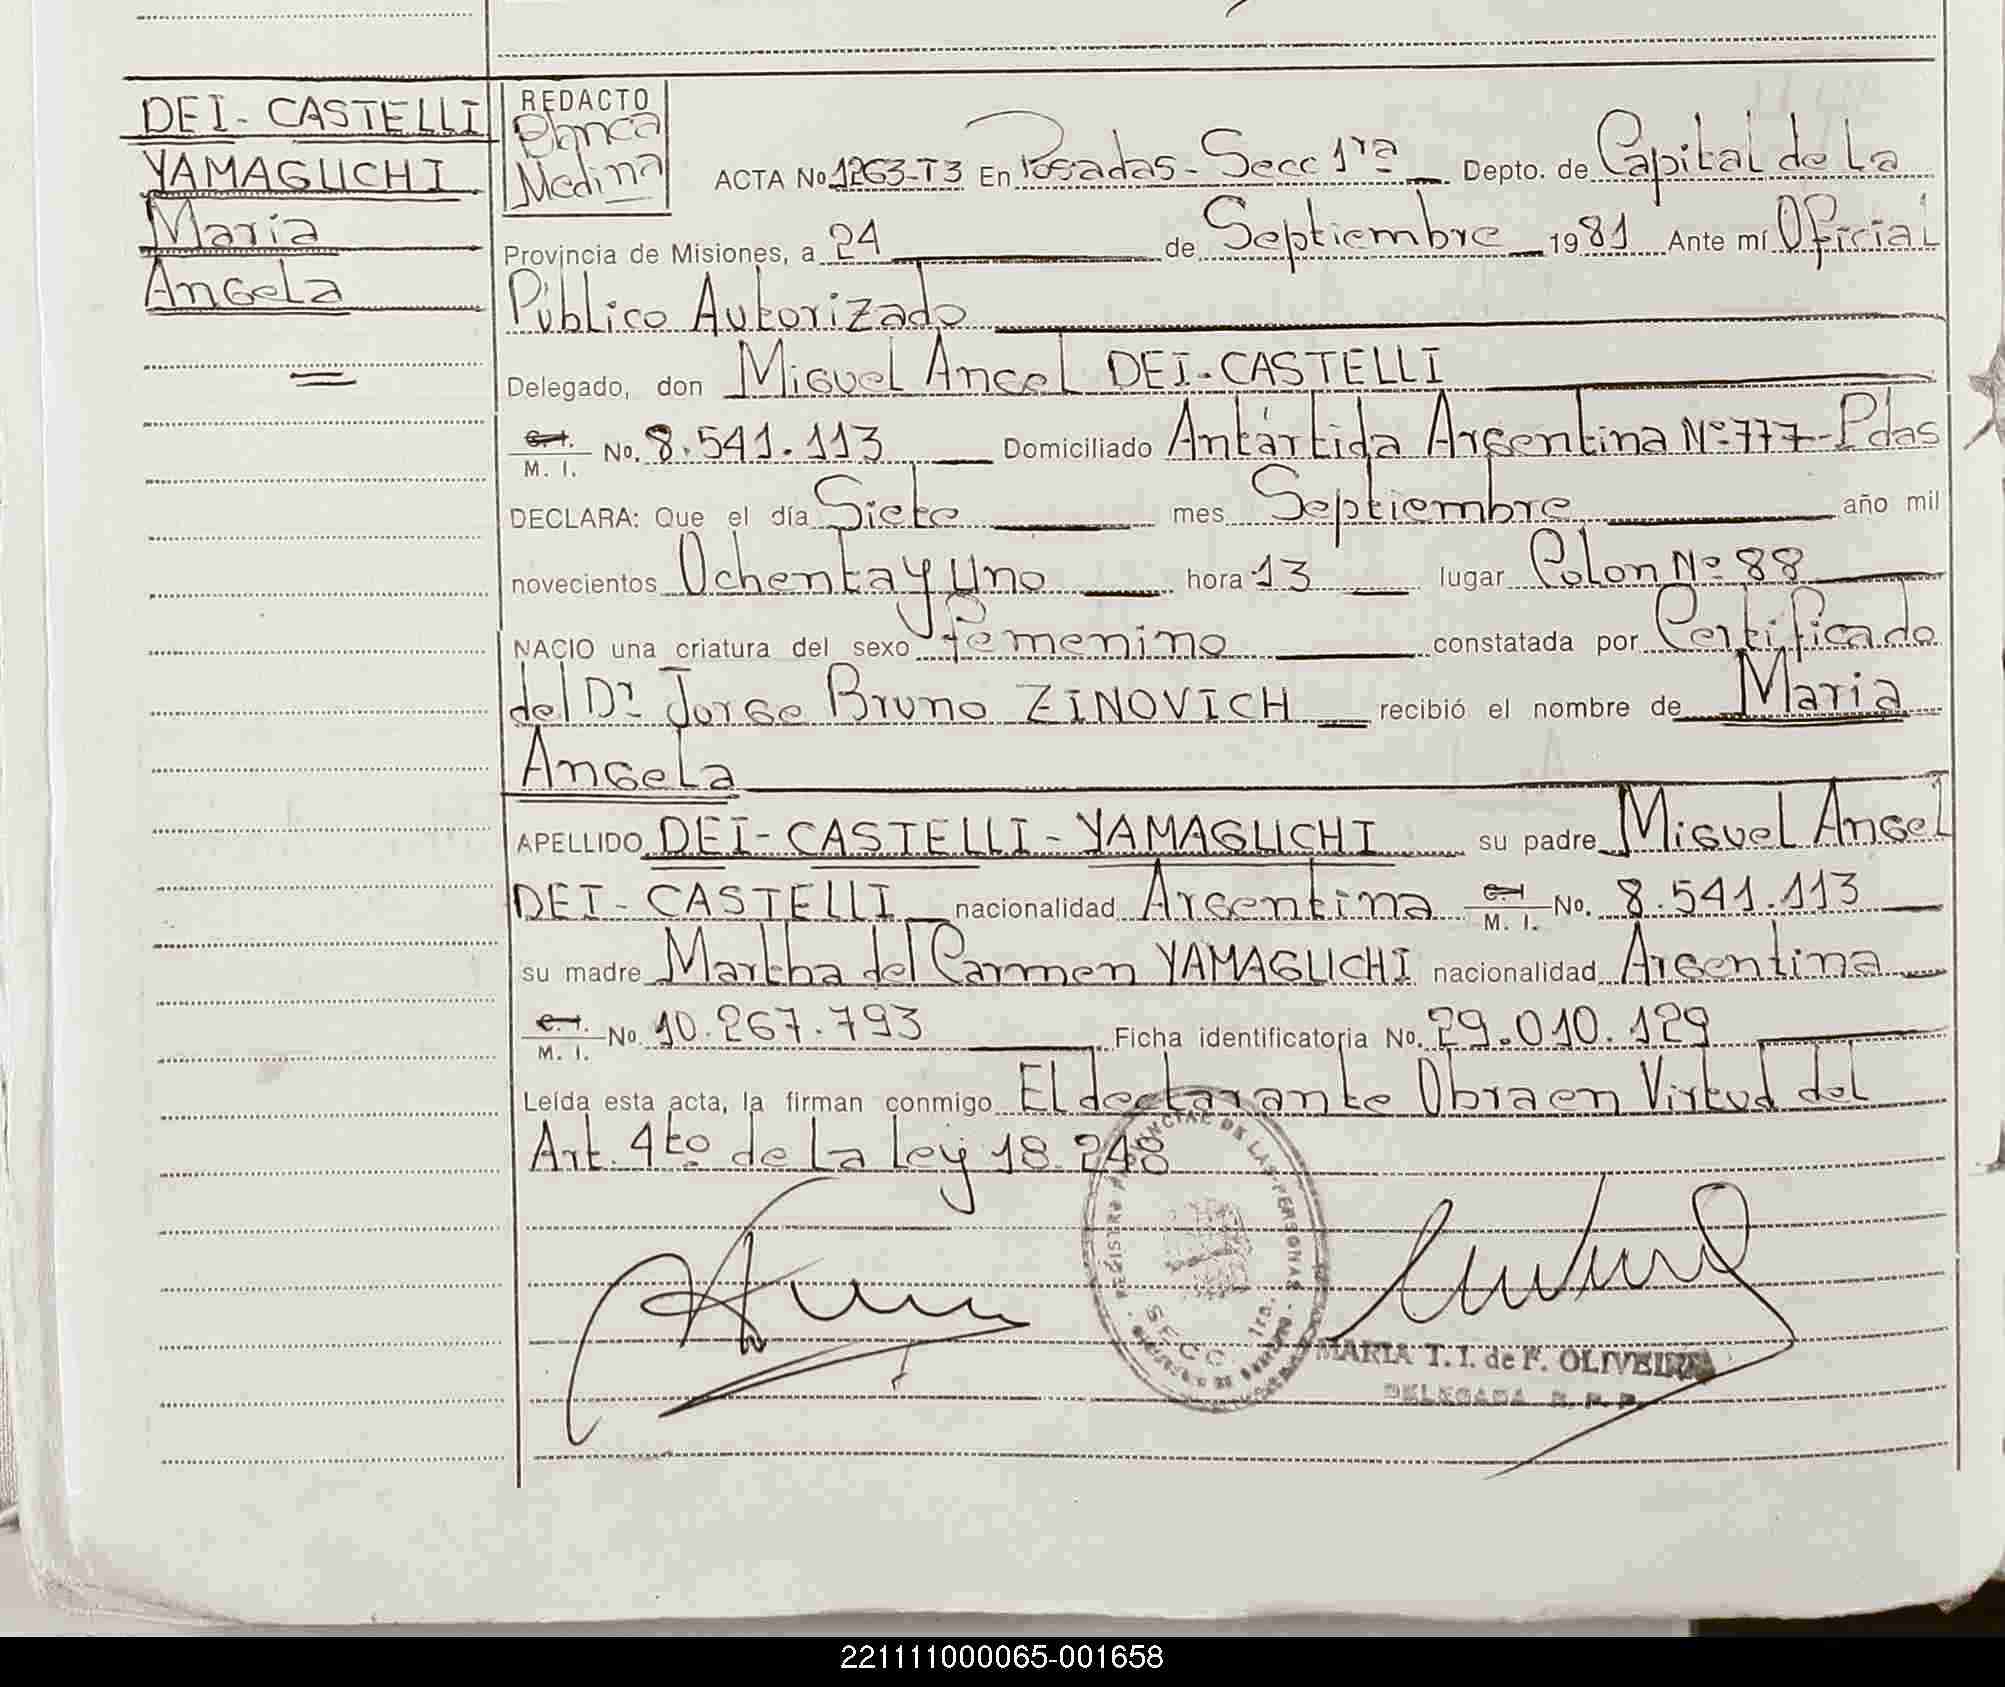 DEI-CASTELLI
YAMAGUCHI
Maria
Angela
REDACTO
Blanca
Medina
ACTA No 1263-T3 En Posadas - Secc 1ra Depto. de Capital de La
Provincia de Misiones, a 24 de Septiembre 1981 Ante mí Oficial
Público Autorizado
Delegado, don Miguel Angel DEI-CASTELLI
C.I. M. I. No. 8.541.113 Domiciliado Antártida Argentina Nº 777-Pdas
DECLARA: Que el día Siete mes Septiembre año mil
novecientos Ochenta y Uno hora 13 lugar Colon Nº 88
NACIO una criatura del sexo femenino constatada por Certificado
del Dr Jorge Bruno ZINOVICH recibió el nombre de Maria
Angela
APELLIDO DEI-CASTELLI-YAMAGUCHI su padre Miguel Angel
DEI-CASTELLI nacionalidad Argentina C.I. M. I. No. 8.541.113
su madre Martha del Carmen YAMAGUCHI nacionalidad Argentina
C.I. M. I. No 10.267.793 Ficha identificatoria No. 29.010.129
Leída esta acta, la firman conmigo El declarante Obra en Virtud del
Art. 4to de La Ley 18.248
REGISTRO PROVINCIAL DE LAS PERSONAS
SECC. 1ra.
MARIA T. I. de F. OLIVEIRA
DELEGADA R. P. P.
221111000065-001658